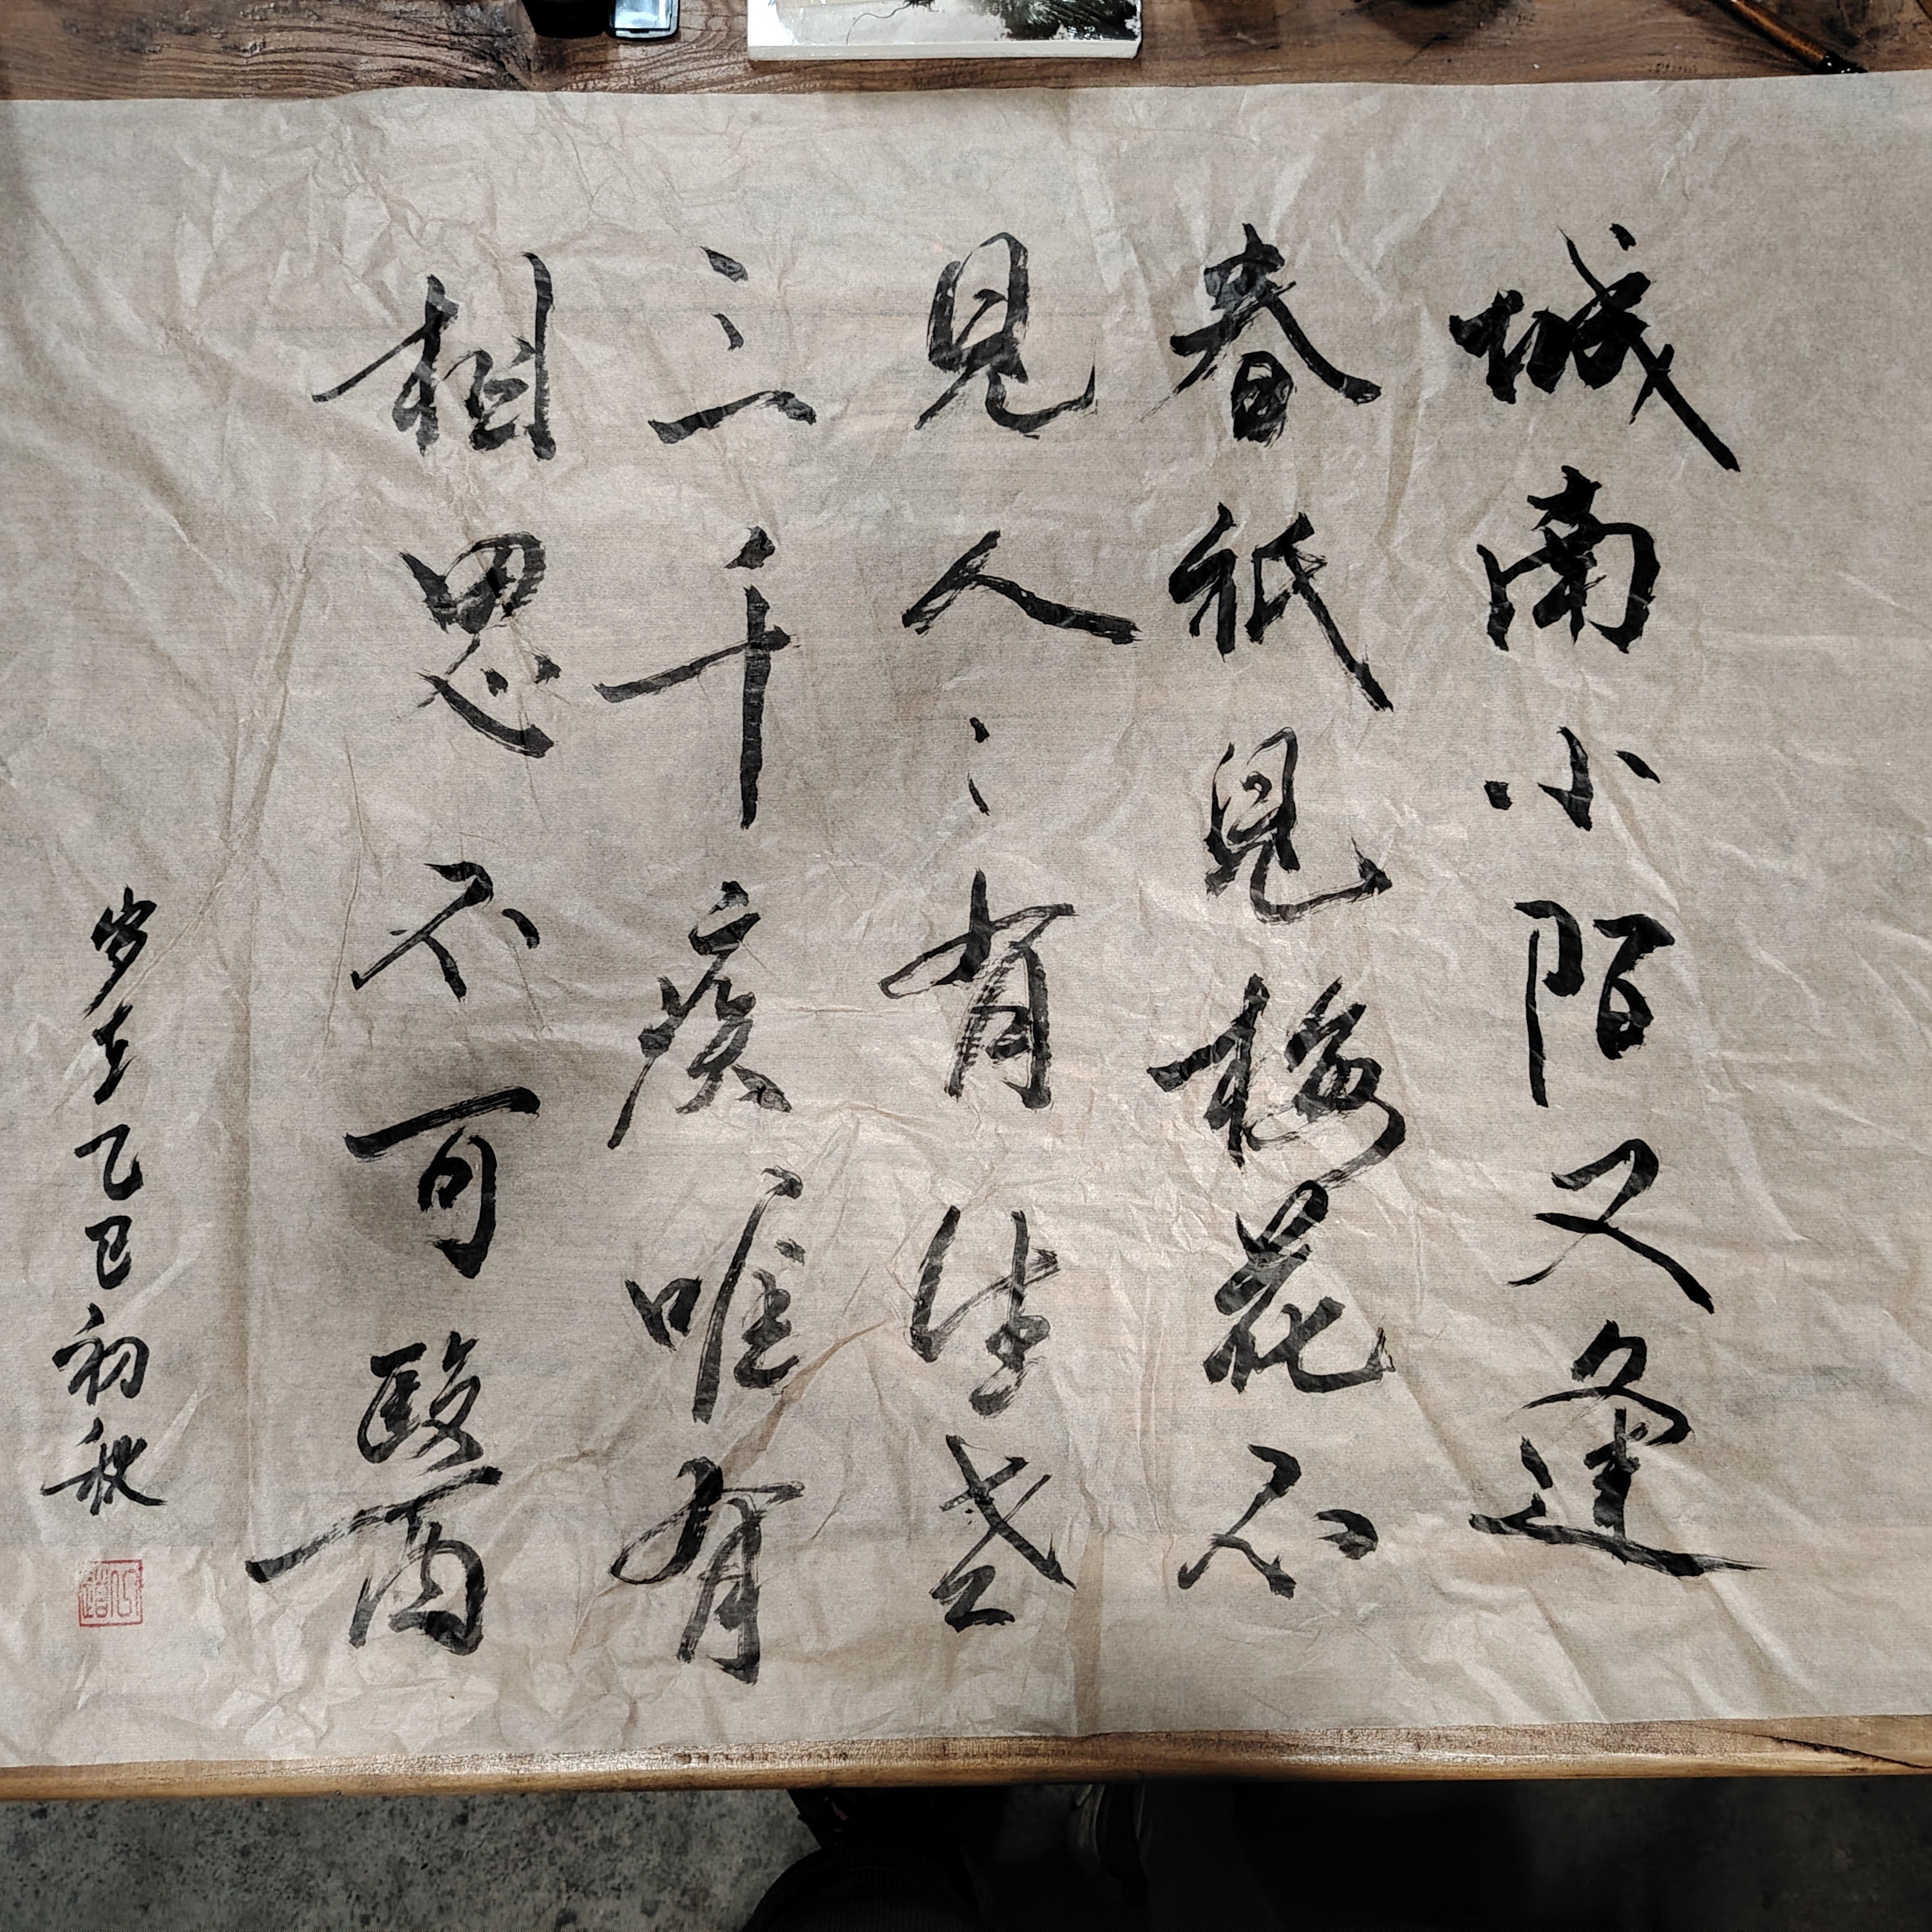 城南小陌又逢
春祇見梅花不
見人〻有生老
三千疾唯有
相思不可醫
岁在乙巳初秋